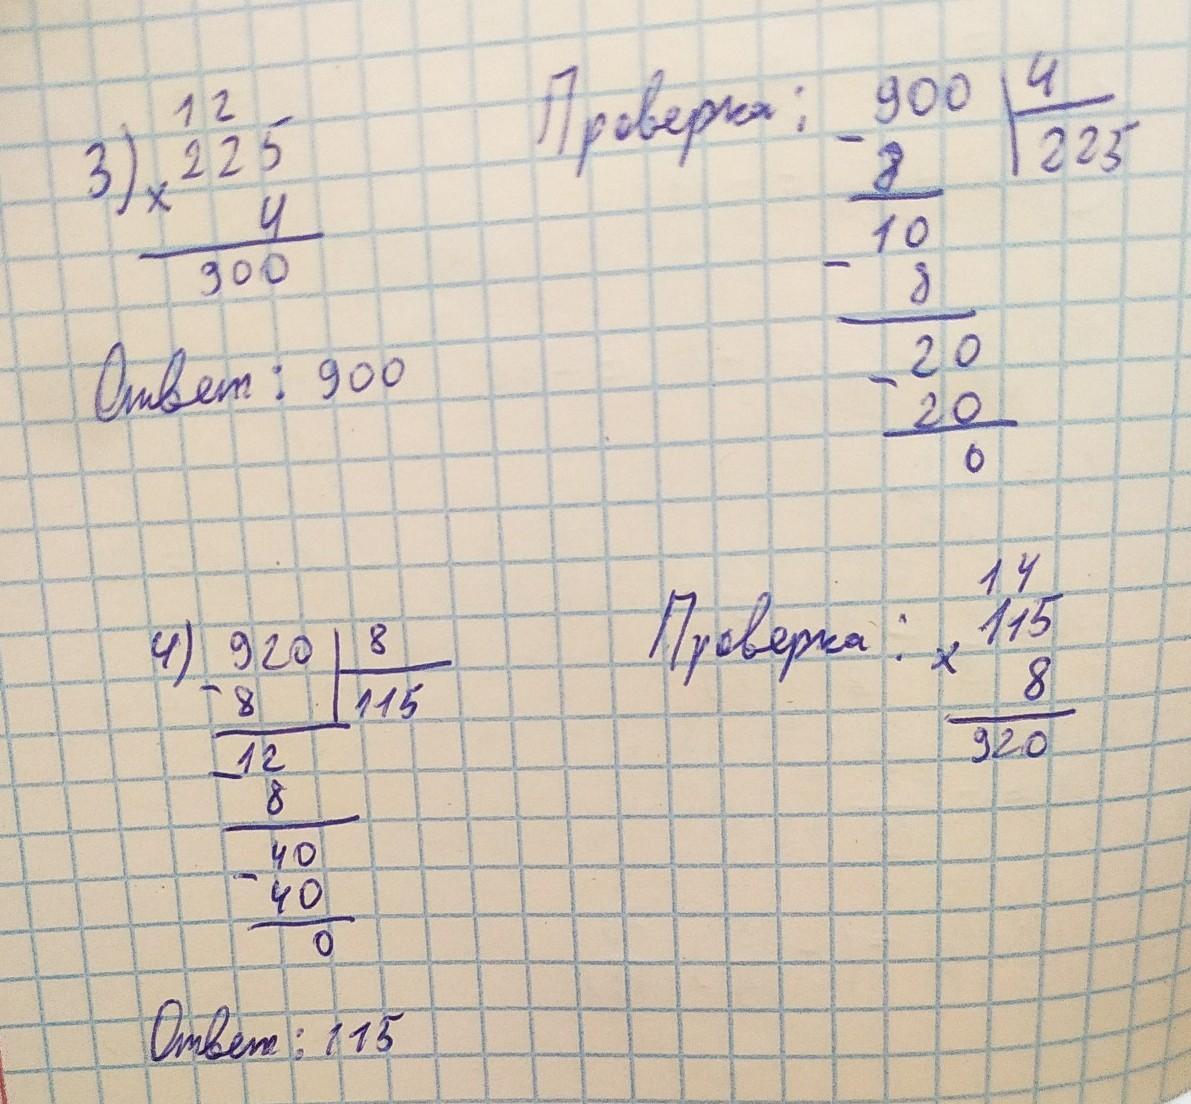 12
3) 225
× 4
900
Ответ: 900
Проверка: 900 4
- 8 225
10
- 8
20
- 20
0
4) 920 8
- 8 115
12
- 8
40
- 40
0
Ответ: 115
14
Проверка: 115
× 8
920